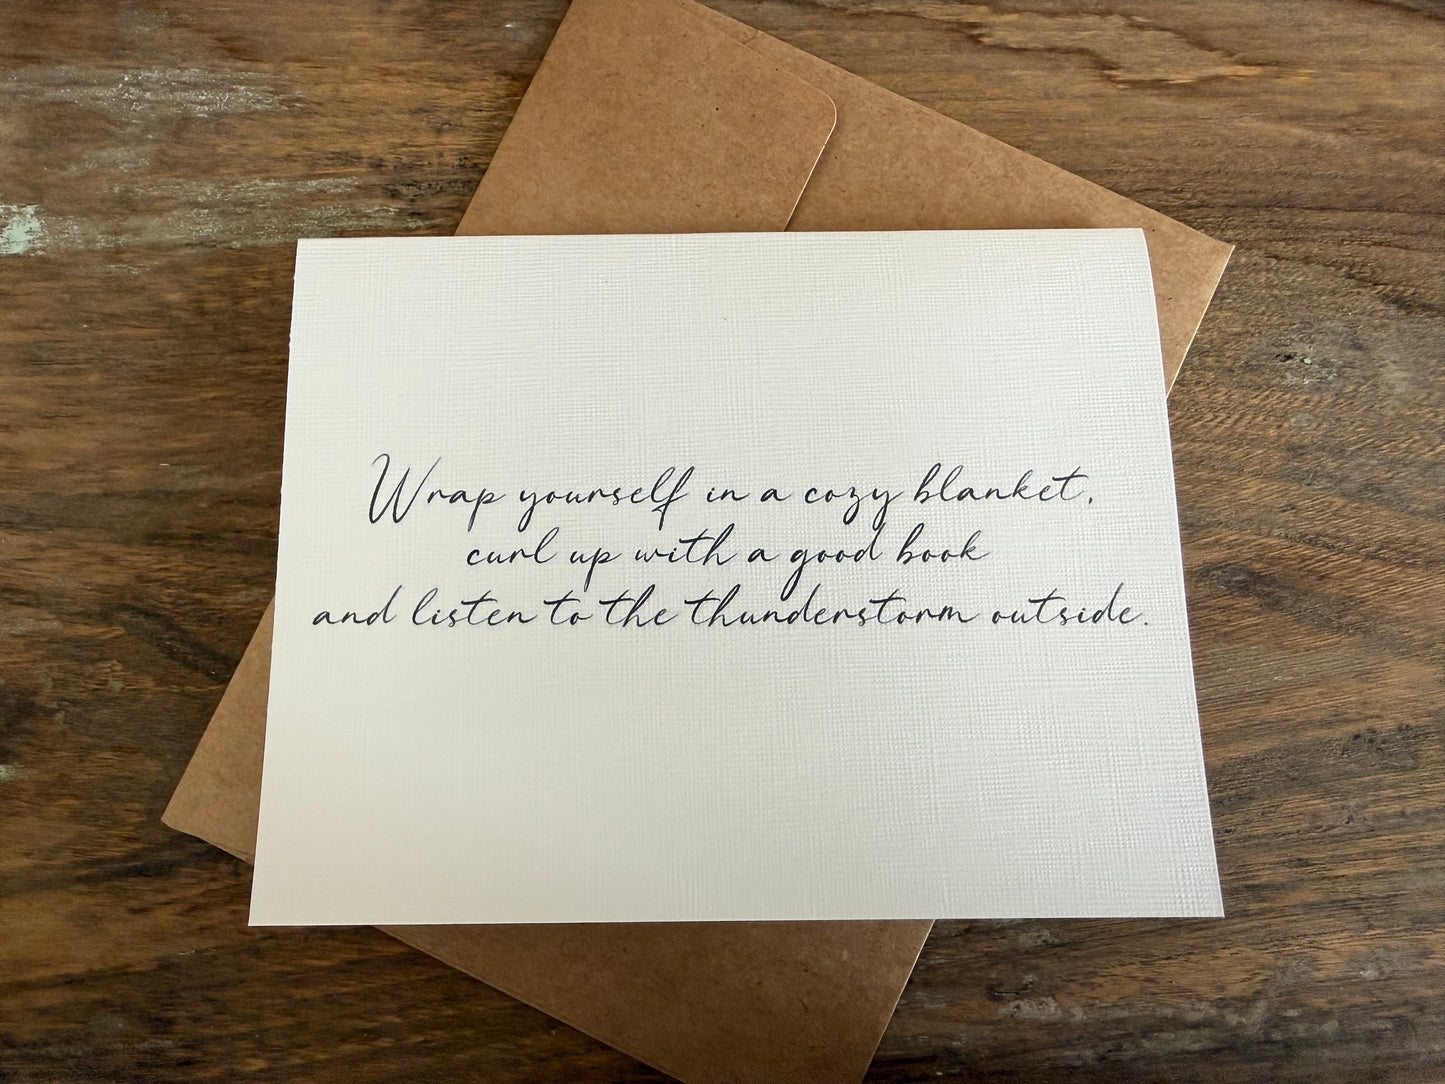 Wrap yourself in a cozy blanket,
curl up with a good book
and listen to the thunderstorm outside.